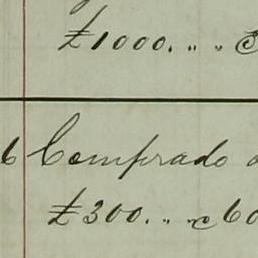 £1000. „ „
6 Comprado a
£300. „ „ c 60